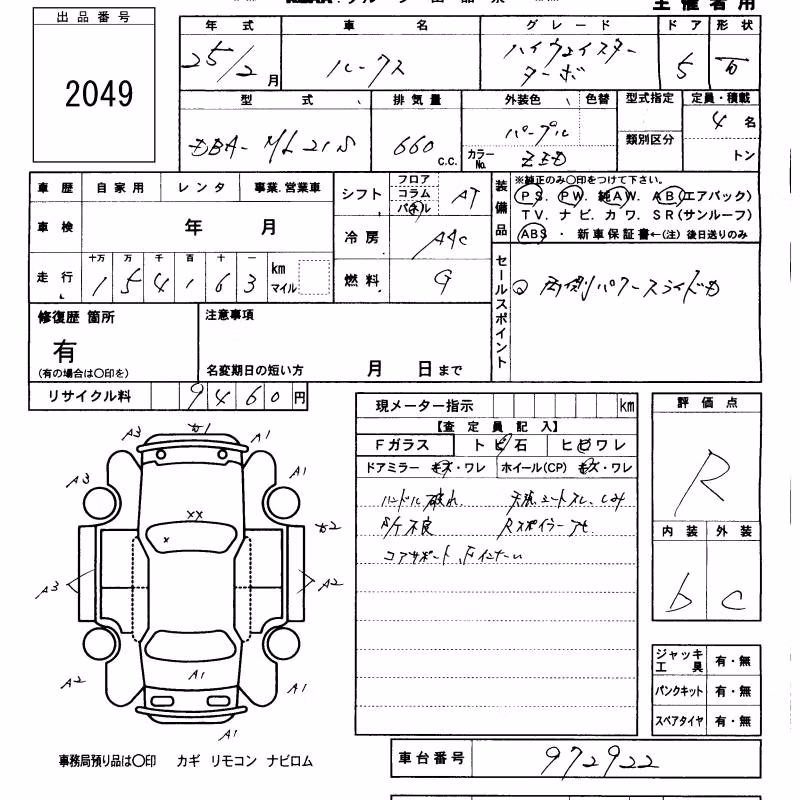 出品番号
2049
主催者用
年式 車名 グレード ドア 形状
25/2月 ルークス ハイウェイスター ターボ 5
型式 排気量 外装色 色替 型式指定 定員・積載
DBA-ML21S 660 c.c. パープル 4名
カラーNo. 類別区分 トン
車歴 自家用 レンタ 事業.営業車
車検 年 月
走行 十万 万 千 百 十 一 km マイル
1 5 4 1 6 3
シフト フロア コラム パネル AT
冷房 AAC
燃料 G
装備品 ※純正のみ〇印をつけて下さい。
PS. PW. 純AW. AB(エアバック)
TV. ナビ. カワ. SR(サンルーフ)
ABS ・ 新車保証書←(注) 後日送りのみ
セールスポイント
両側パワースライドD
修復歴 箇所
有
(有の場合は〇印を)
注意事項
名変期日の短い方 月 日まで
リサイクル料 9460円
現メーター指示 km
【査定員記入】
Fガラス トビ石 ヒビワレ
ドアミラー キズ・ワレ ホイール(CP) キズ・ワレ
ハンドル破れ
不良 Rスポイラー
コアサポート
評価点
R
内装 外装
b C
A3 A1
A3 A1
XX
x
A3 A2
A2 A1 A1
A1
ジャッキ 工具 有・無
パンクキット 有・無
スペアタイヤ 有・無
事務局預り品は〇印 カギ リモコン ナビロム
車台番号 972922